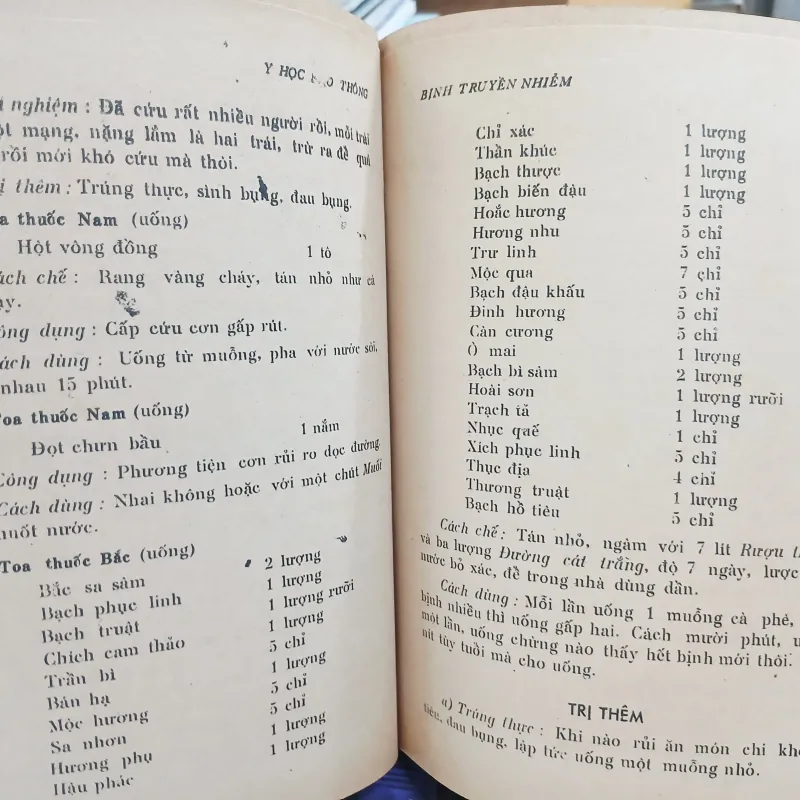 Y HỌC THÔNG
nghiệm : Đã cứu rất nhiều người rồi, mỗi trái
mạng, nặng lắm là hai trái, trừ ra để quá
rồi mới khó cứu mà thôi.
thêm : Trúng thực, sình bụng, đau bụng.
thuốc Nam (uống)
Hột vòng đồng 1 tô
chế : Rang vàng cháy, tán nhỏ như cà
dụng : Cấp cứu cơn gấp rút.
dùng : Uống từ muỗng, pha với nước sôi,
nhau 15 phút.
Toa thuốc Nam (uống)
Đọt chưn bầu 1 nắm
Công dụng : Phương tiện cơn rủi ro dọc đường.
Cách dùng : Nhai không hoặc với một chút Muối
nuốt nước.
Toa thuốc Bắc (uống)
Bắc sa sâm 2 lượng
Bạch phục linh 1 lượng
Bạch truật 1 lượng rưỡi
Chích cam thảo 1 lượng
Trần bì 5 chỉ
Bán hạ 1 lượng
Mộc hương 5 chỉ
Sa nhơn 5 chỉ
Hương phụ 1 lượng
Hậu phác 1 lượng
BỊNH TRUYỀN NHIỄM
Chỉ xác 1 lượng
Thần khúc 1 lượng
Bạch thược 1 lượng
Bạch biển đậu 1 lượng
Hoắc hương 5 chỉ
Hương nhu 5 chỉ
Trư linh 5 chỉ
Mộc qua 7 chỉ
Bạch đậu khấu 5 chỉ
Đinh hương 5 chỉ
Càn cương 5 chỉ
Ô mai 1 lượng
Bạch bì sâm 2 lượng
Hoài sơn 1 lượng rưỡi
Trạch tả 1 lượng
Nhục quế 1 chỉ
Xích phục linh 5 chỉ
Thục địa 4 chỉ
Thương truật 1 lượng
Bạch hồ tiêu 5 chỉ
Cách chế : Tán nhỏ, ngâm với 7 lít Rượu
và ba lượng Đường cát trắng, độ 7 ngày, lược
nước bỏ xác, để trong nhà dùng dần.
Cách dùng : Mỗi lần uống 1 muỗng cà phê,
bịnh nhiều thì uống gấp hai. Cách mười phút,
một lần, uống chừng nào thấy hết bịnh mới thôi.
nít tùy tuổi mà cho uống.
TRỊ THÊM
a) Trúng thực : Khi nào rủi ăn món chi
tiêu, đau bụng, lập tức uống một muỗng nhỏ.